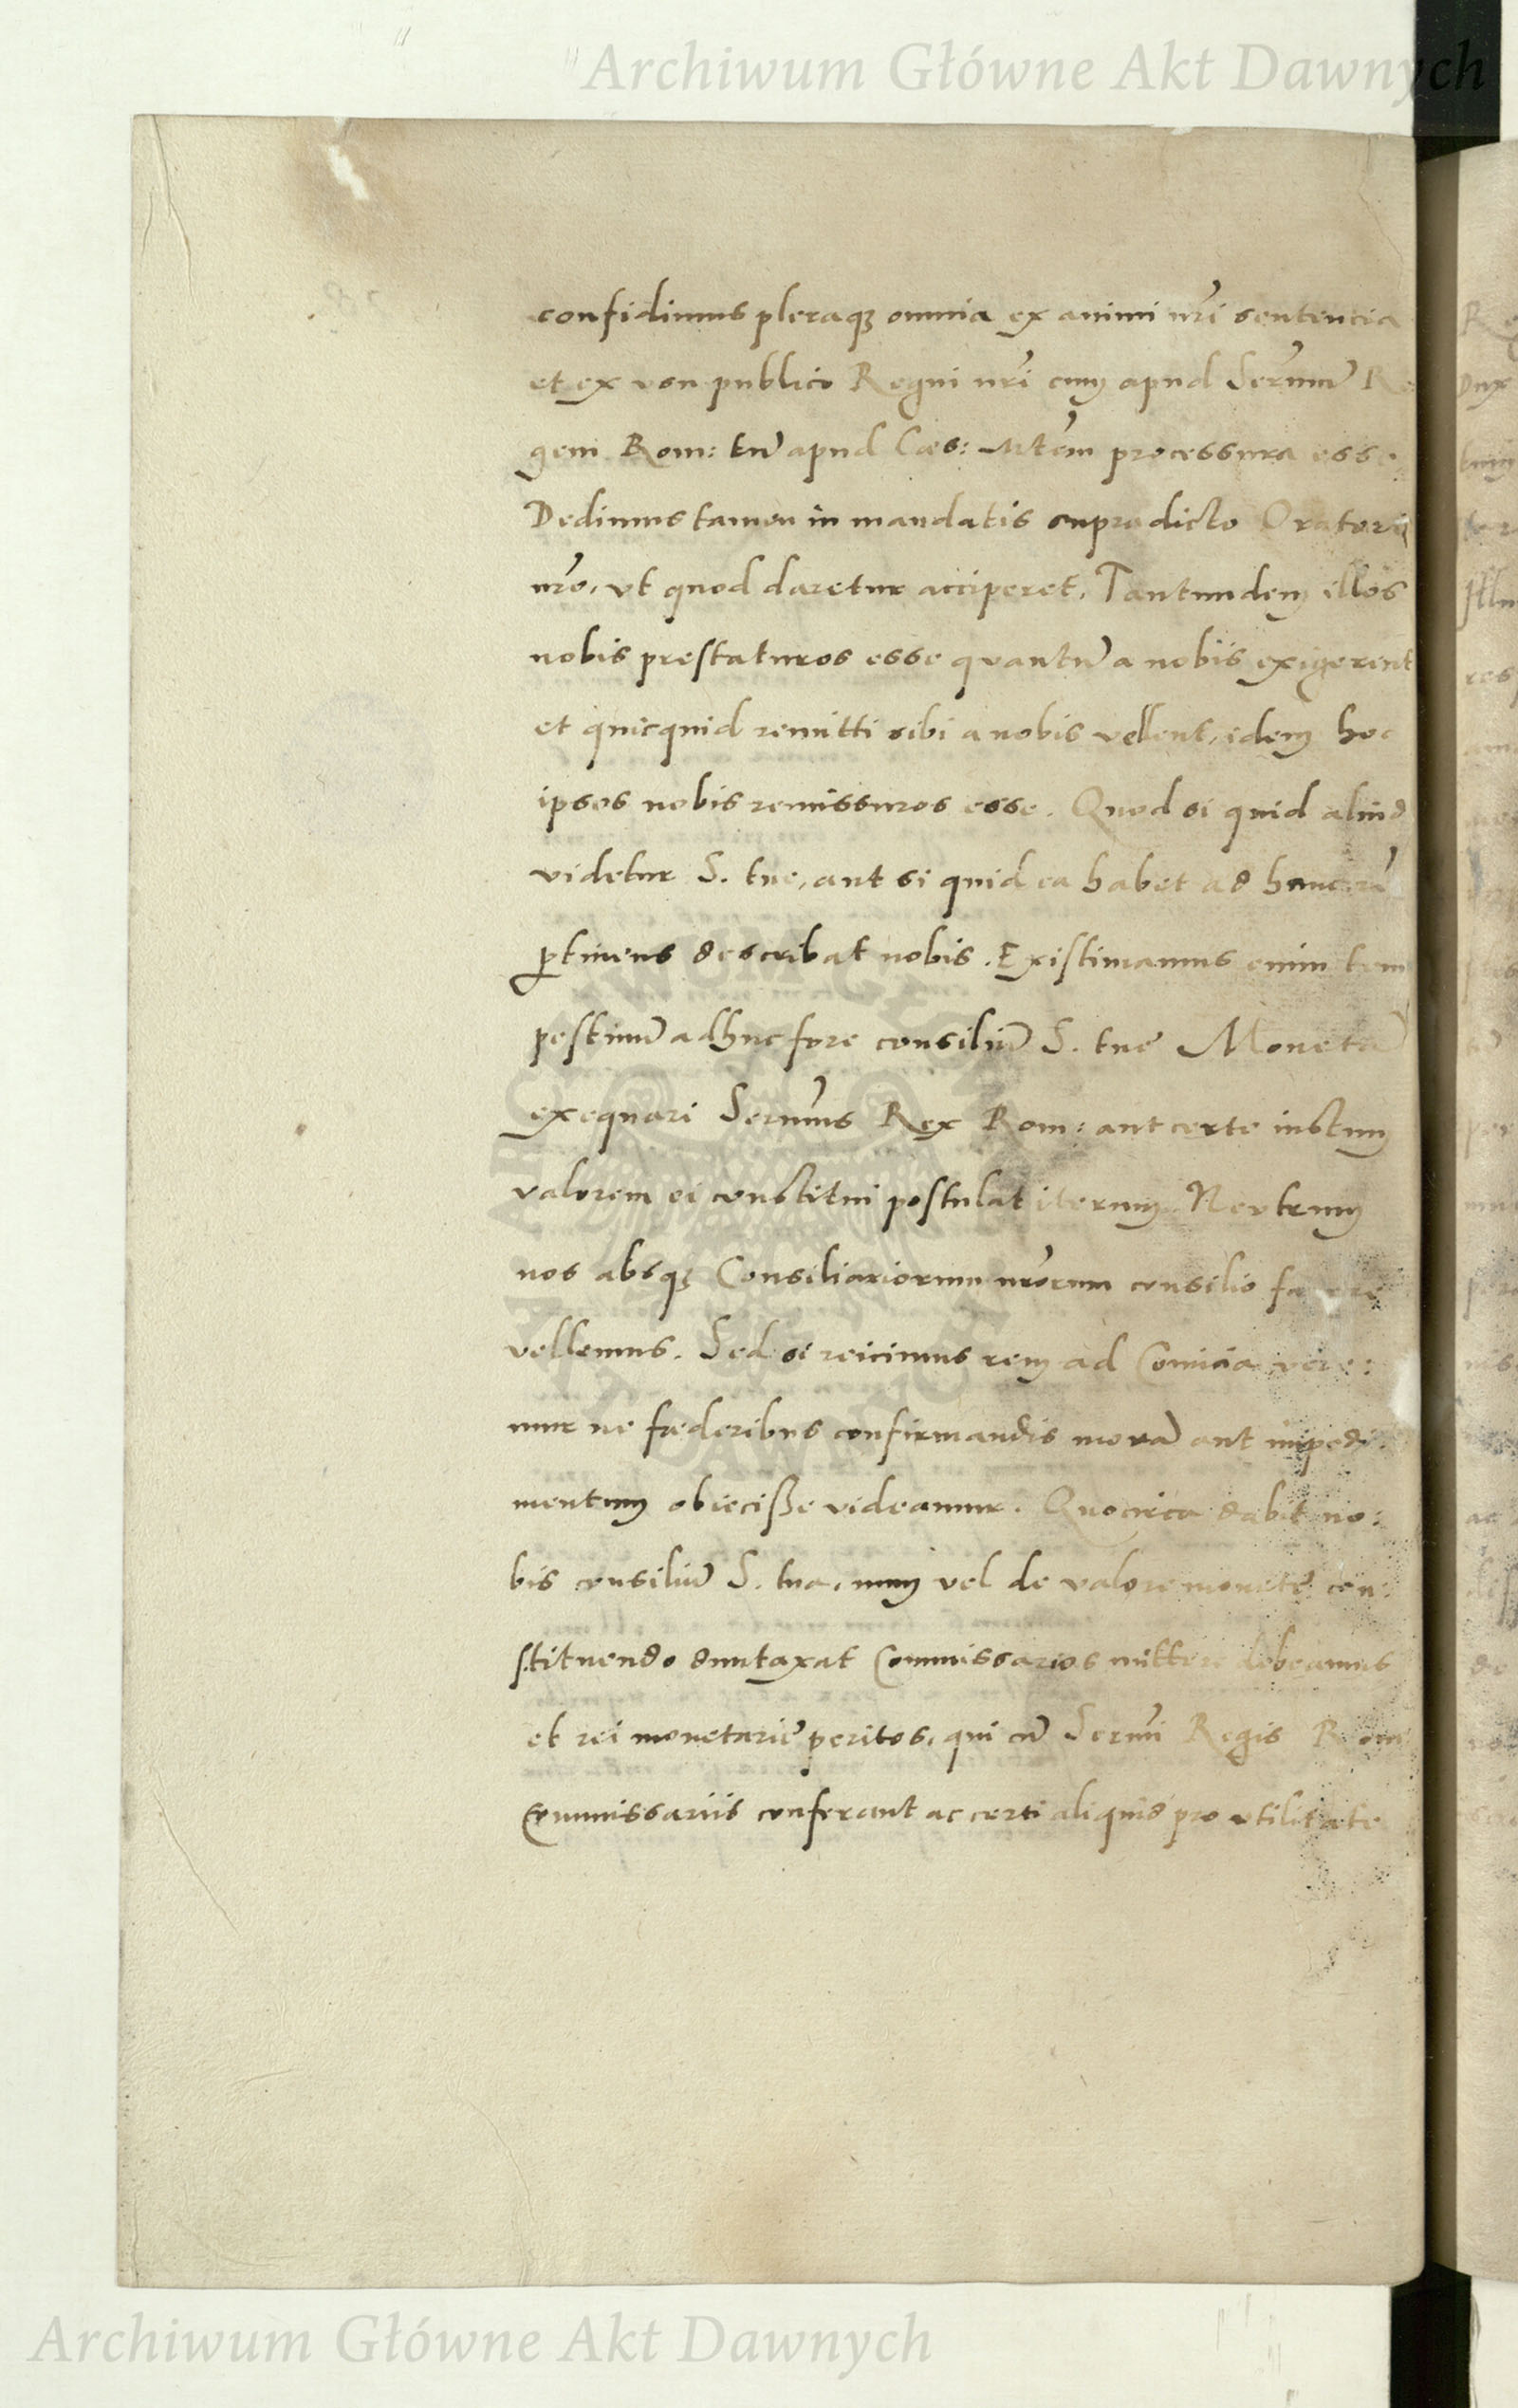 Archiwum Główne Akt Dawnych
confidimus pleraqꝫ omnia ex animi nr̃i sententia
et ex usu publico Regni nr̃i cum apud Serm̃ũ Re
gem Rom: tũ apud Cæs: Mtẽm processura esse
Dedimus tamen in mandatis supradicto Oratori
nr̃o, ut quod daretur acciperet. Tantundem illos
nobis prestaturos esse quantũ a nobis exigerent
et quicquid remitti sibi a nobis vellent, idem hoc
ipsos nobis remissuros esse. Quod si quid aliud
videtur S. tue, aut si quid ea habet ad hanc rẽ
ꝑtinens describat nobis. Existimamus enim tem
pestiuũ adhuc fore consiliũ S. tue Monetã
exequari Serm̃us Rex Rom: aut certe iustum
valorem ei constitui postulat iterum. Neutrum
nos absqꝫ Consiliariorum nr̃orum consilio facere
vellemus. Sed si reicimus rem ad Comicia vere:
mur ne fœderibus confirmandis morã aut impedi
mentum obieciße videamur. Quocirca dabit no:
bis consiliũ S. tua, num vel de valore monete con:
stituendo duntaxat Commissarios mittere debeamus
et rei monetarie peritos, qui cũ Serm̃i Regis Rom
Commissariis conferant ac certi aliquid pro utilitate
Archiwum Główne Akt Dawnych